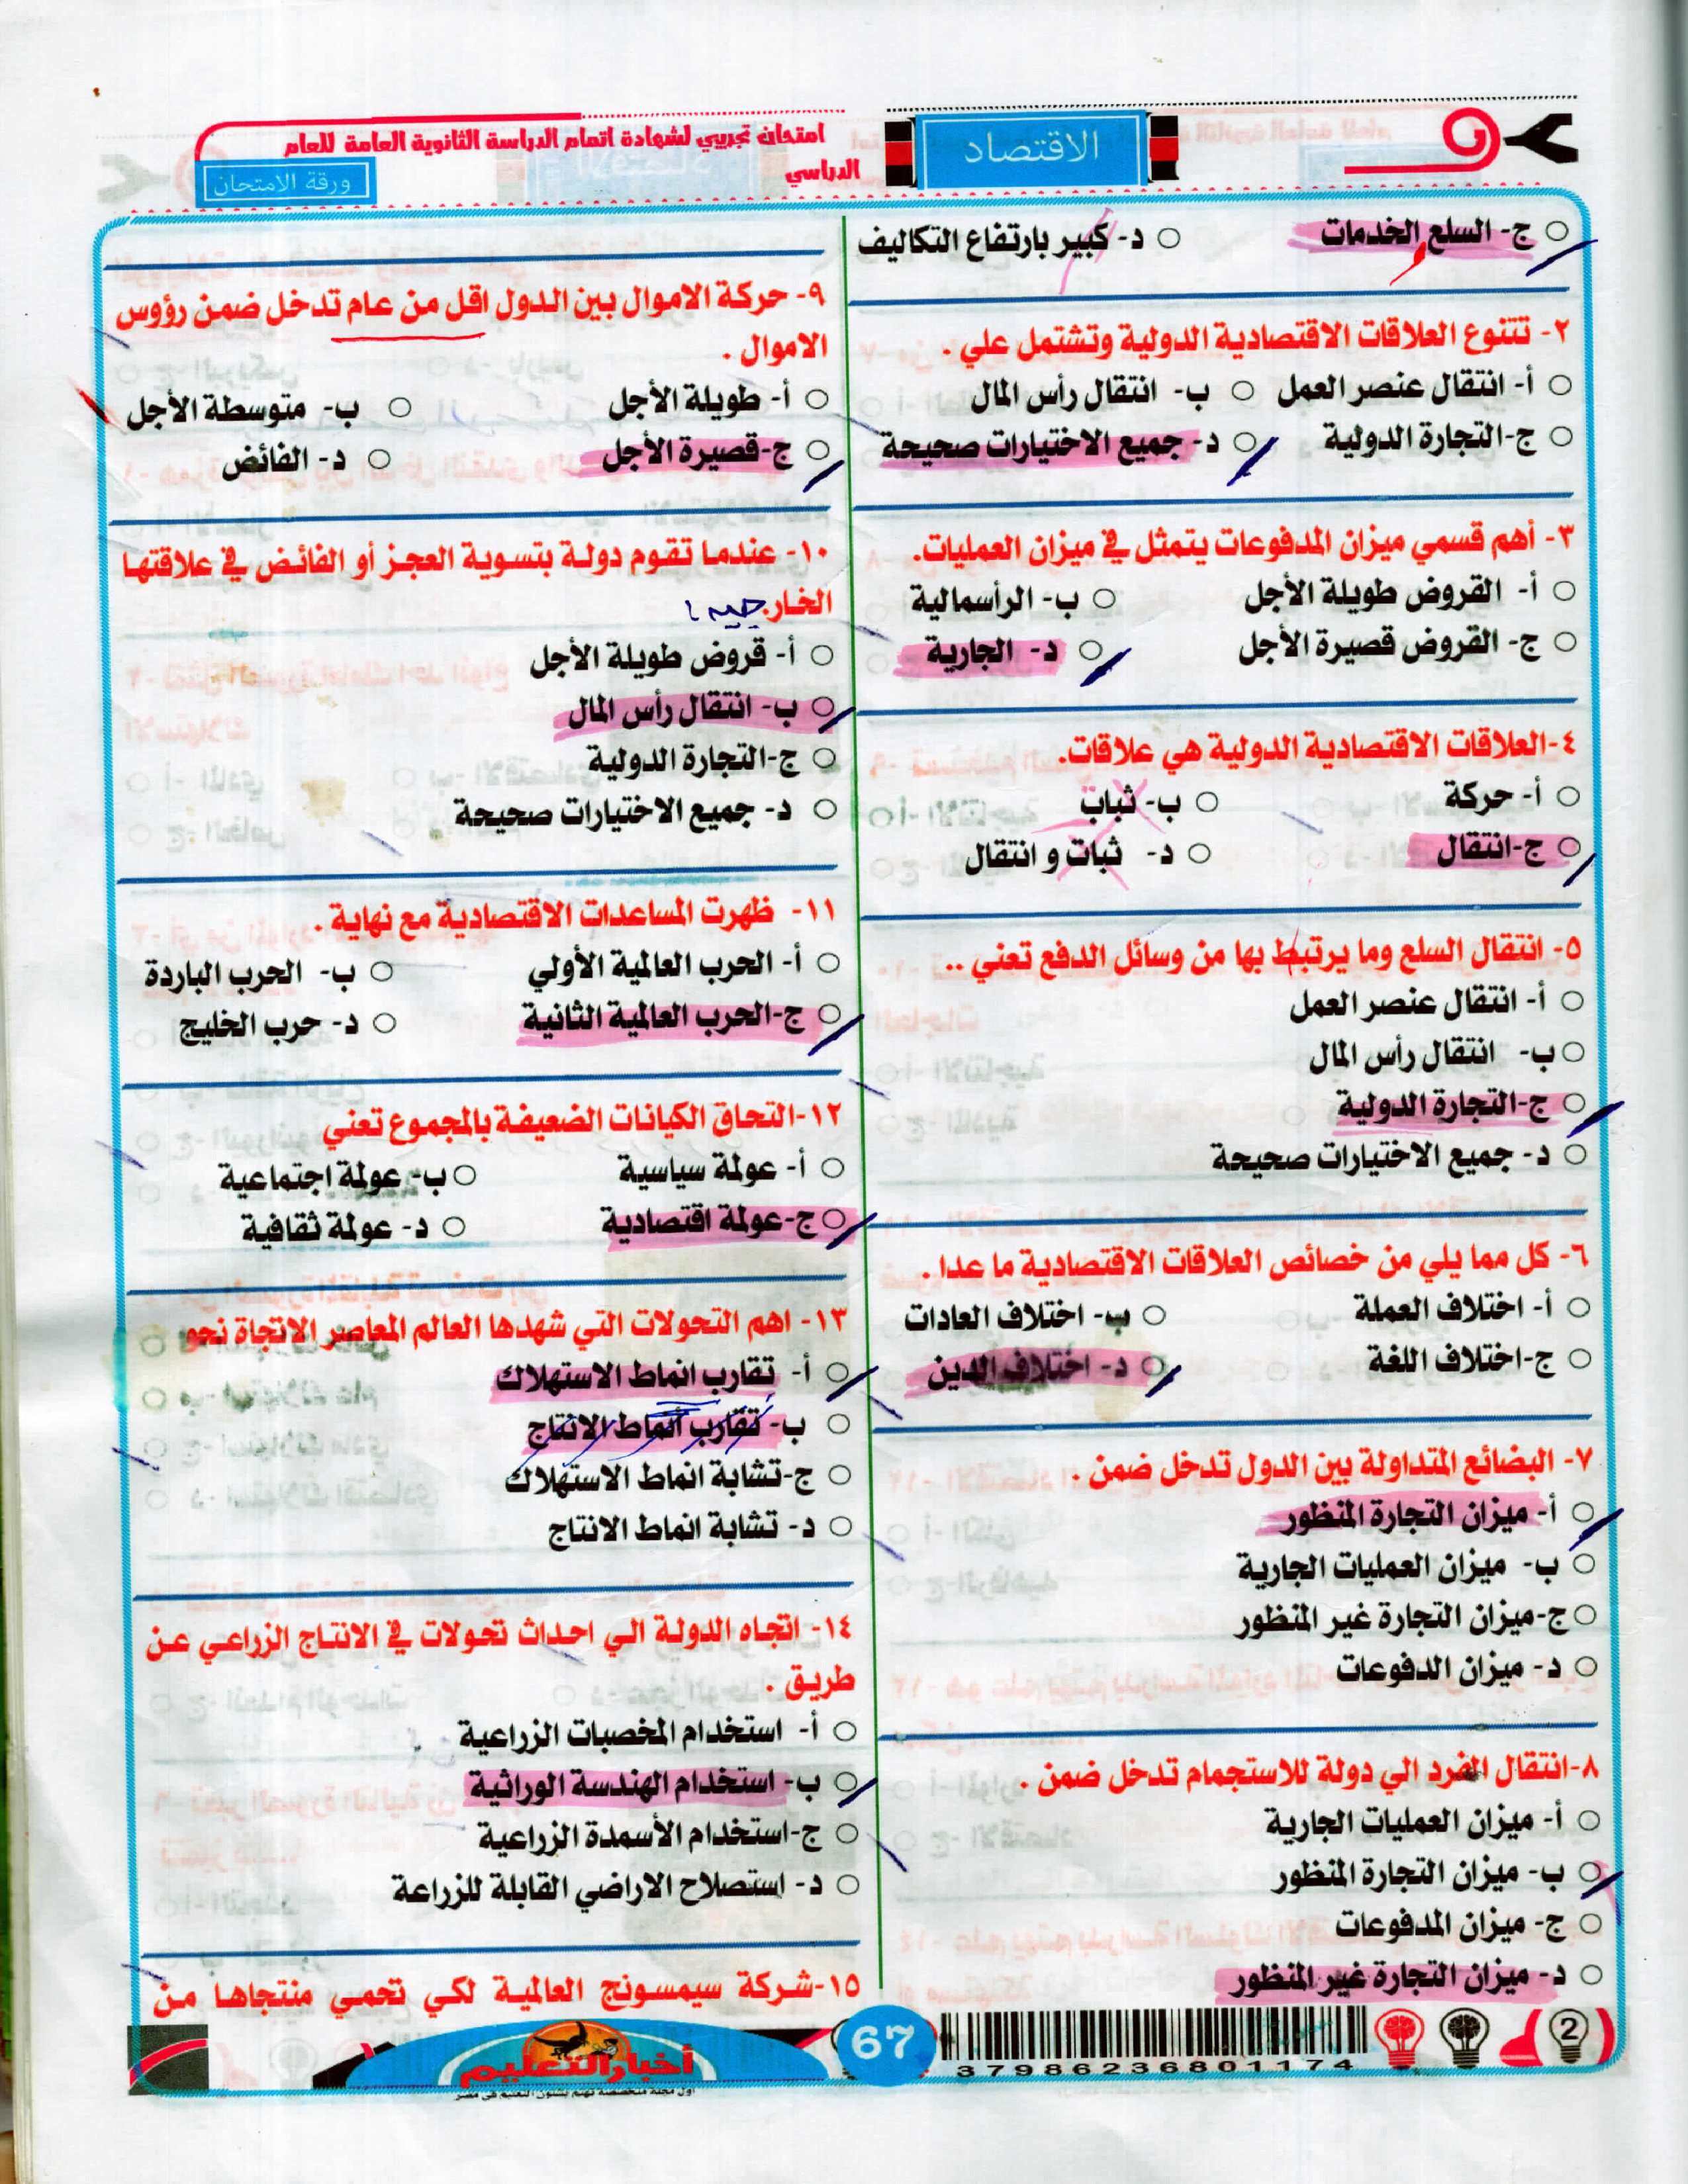 الاقتصاد
امتحان تجريبي لشهادة اتمام الدراسة الثانوية العامة للعام
الدراسي
ورقة الامتحان
ج- السلع الخدمات
د- كبير بارتفاع التكاليف
٢- تتنوع العلاقات الاقتصادية الدولية وتشتمل علي .
أ- انتقال عنصر العمل
ب- انتقال رأس المال
ج-التجارة الدولية
د- جميع الاختيارات صحيحة
٣- أهم قسمي ميزان المدفوعات يتمثل في ميزان العمليات.
أ- القروض طويلة الأجل
ب- الرأسمالية
ج- القروض قصيرة الأجل
د- الجارية
٤-العلاقات الاقتصادية الدولية هي علاقات.
أ- حركة
ب- ثباب
ج-انتقال
د- ثبات و انتقال
٥- انتقال السلع وما يرتبط بها من وسائل الدفع تعني ..
أ- انتقال عنصر العمل
ب- انتقال رأس المال
ج-التجارة الدولية
د- جميع الاختيارات صحيحة
٦- كل مما يلي من خصائص العلاقات الاقتصادية ما عدا .
أ- اختلاف العملة
ب- اختلاف العادات
ج-اختلاف اللغة
د- اختلاف الدين
٧- البضائع المتداولة بين الدول تدخل ضمن .
أ- ميزان التجارة المنظور
ب- ميزان العمليات الجارية
ج-ميزان التجارة غير المنظور
د- ميزان الدفوعات
٨-انتقال الفرد الي دولة للاستجمام تدخل ضمن .
أ- ميزان العمليات الجارية
ب- ميزان التجارة المنظور
ج- ميزان المدفوعات
د- ميزان التجارة غير المنظور
٩- حركة الاموال بين الدول اقل من عام تدخل ضمن رؤوس
الاموال .
أ- طويلة الأجل
ب- متوسطة الأجل
ج-قصيرة الأجل
د- الفائض
١٠- عندما تقوم دولة بتسوية العجز أو الفائض في علاقتها
الخار.
أ- قروض طويلة الأجل
ب- انتقال رأس المال
ج-التجارة الدولية
د- جميع الاختيارات صحيحة
١١- ظهرت المساعدات الاقتصادية مع نهاية .
أ- الحرب العالمية الأولي
ب- الحرب الباردة
ج-الحرب العالمية الثانية
د- حرب الخليج
١٢-التحاق الكيانات الضعيفة بالمجموع تعني
أ- عولمة سياسية
ب- عولمة اجتماعية
ج-عولمة اقتصادية
د- عولمة ثقافية
١٣- اهم التحولات التي شهدها العالم المعاصر الاتجاة نحو
أ- تقارب انماط الاستهلاك
ب- تقارب أنماط الانتاج
ج-تشابة انماط الاستهلاك
د- تشابة انماط الانتاج
١٤- اتجاه الدولة الي احداث تحولات في الانتاج الزراعي عن
طريق .
أ- استخدام المخصبات الزراعية
ب- استخدام الهندسة الوراثية
ج-استخدام الأسمدة الزراعية
د- استصلاح الاراضي القابلة للزراعة
١٥-شركة سيمسونج العالمية لكي تحمي منتجاها من
أخبار التعليم
أول مجلة متخصصة تهتم بشئون التعليم في مصر
67
3 7 9 8 6 2 3 6 8 0 1 1 7 4
2